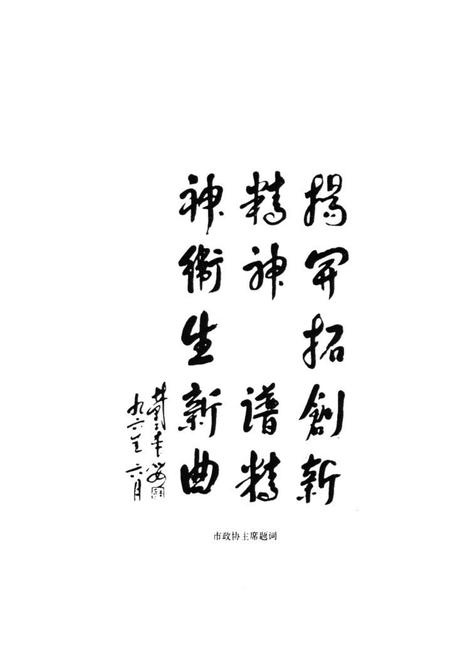 揚開拓創新
精神 譜精
神衛生新曲
九六年六月
市政协主席题词